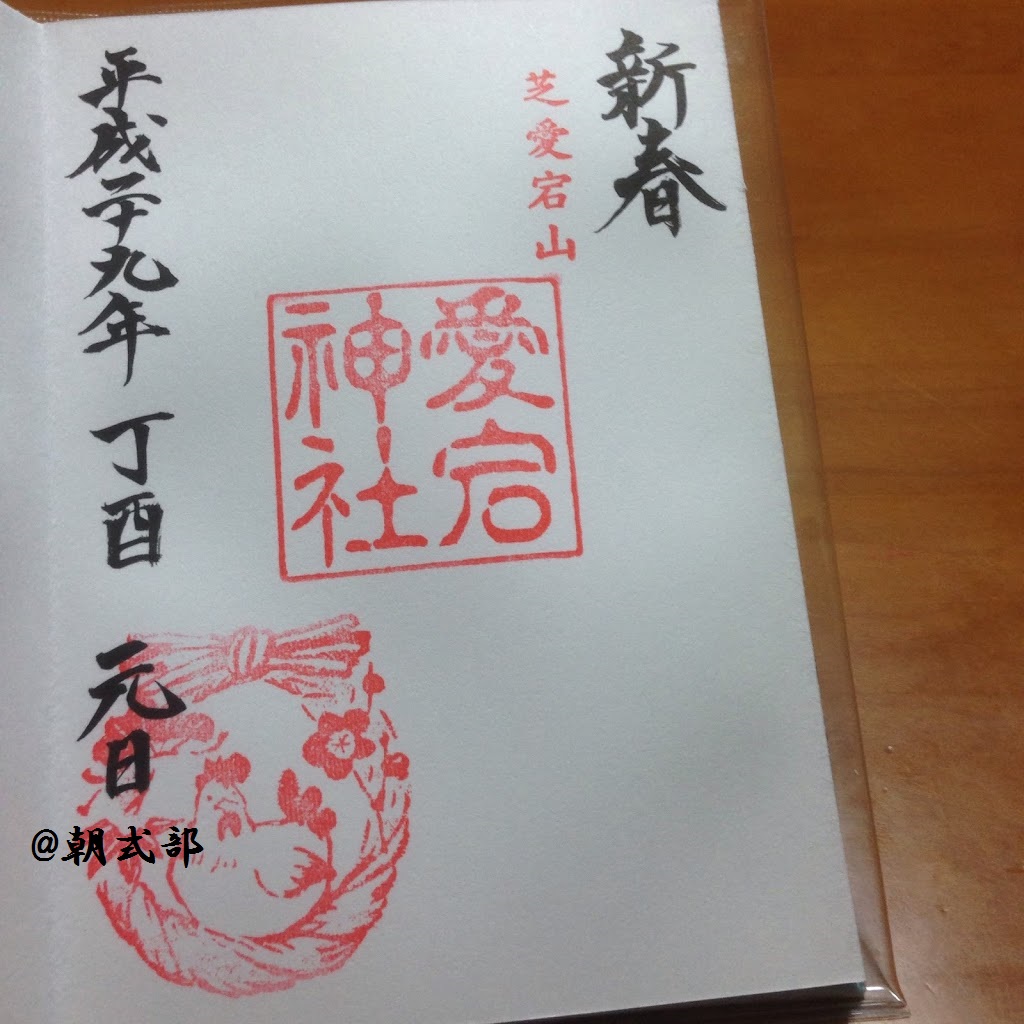 新春
芝愛宕山
愛宕
神社
平成二十九年 丁酉 元日
@朝式部